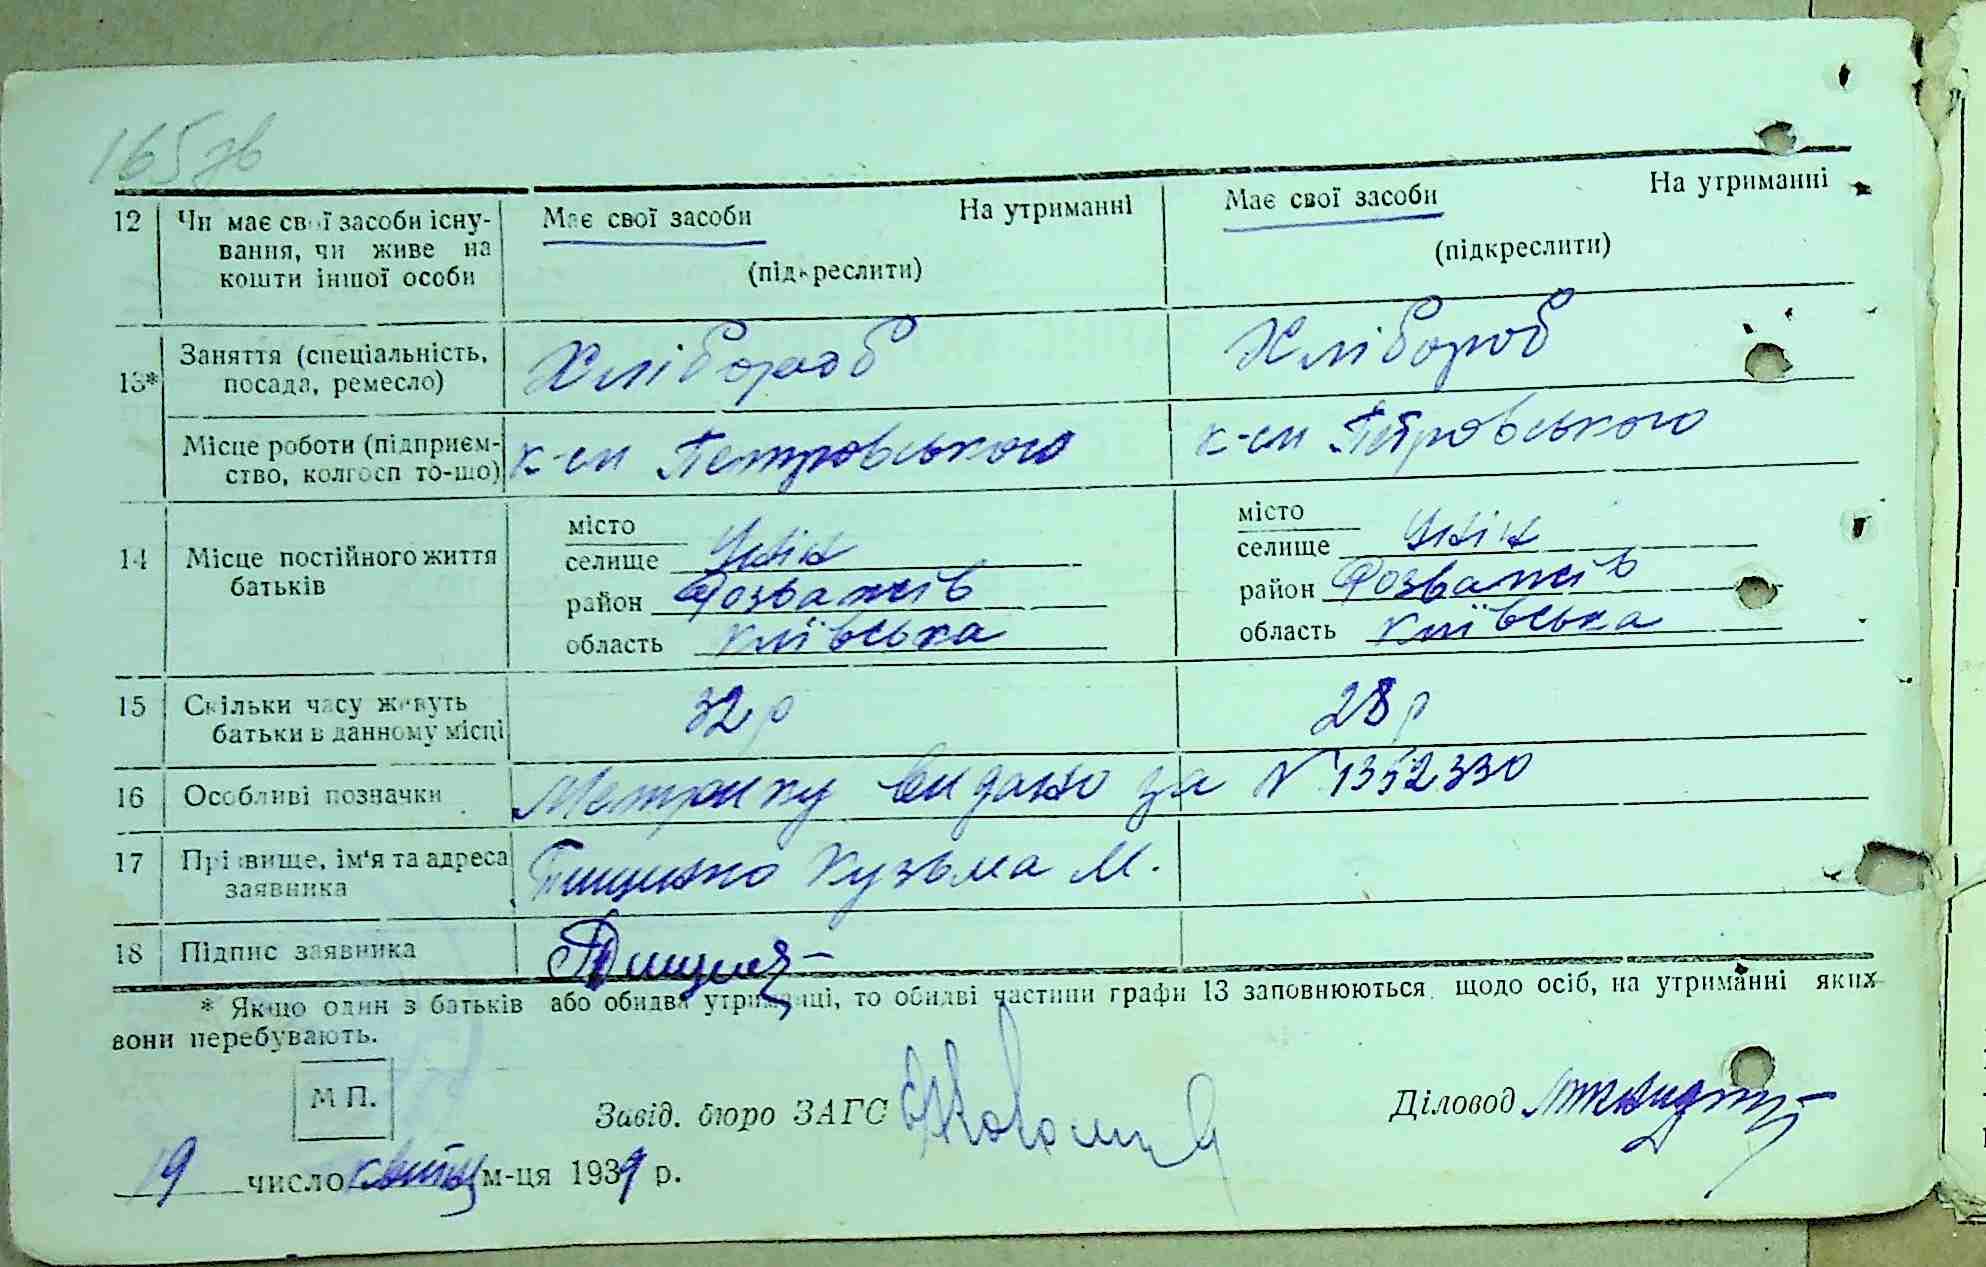 165зв
12 Чи має свої засоби існу- Має свої засоби На утриманні Має свої засоби На утриманні
вання, чи живе на (підкреслити) (підкреслити)
кошти іншої особи
13* Заняття (спеціальність, Хлібороб Хлібороб
посада, ремесло)
Місце роботи (підприєм- к-сп Петровського к-сп Петровського
ство, колгосп то-що)
14 Місце постійного життя місто місто
батьків селище селище
район Розважів район Розважів
область київська область київська
15 Скільки часу живуть 32 р 28 р
батьки в данному місці
16 Особливі позначки Метрику видано за N 1352330
17 Прізвище, ім'я та адреса Пищенко Кузьма М.
заявника
18 Підпис заявника
* Якщо один з батьків або обидва утриманці, то обидві частини графи 13 заповнюються щодо осіб, на утриманні яких
вони перебувають.
М П.
Завід. бюро ЗАГС Діловод
19 число квітня м-ця 1939 р.